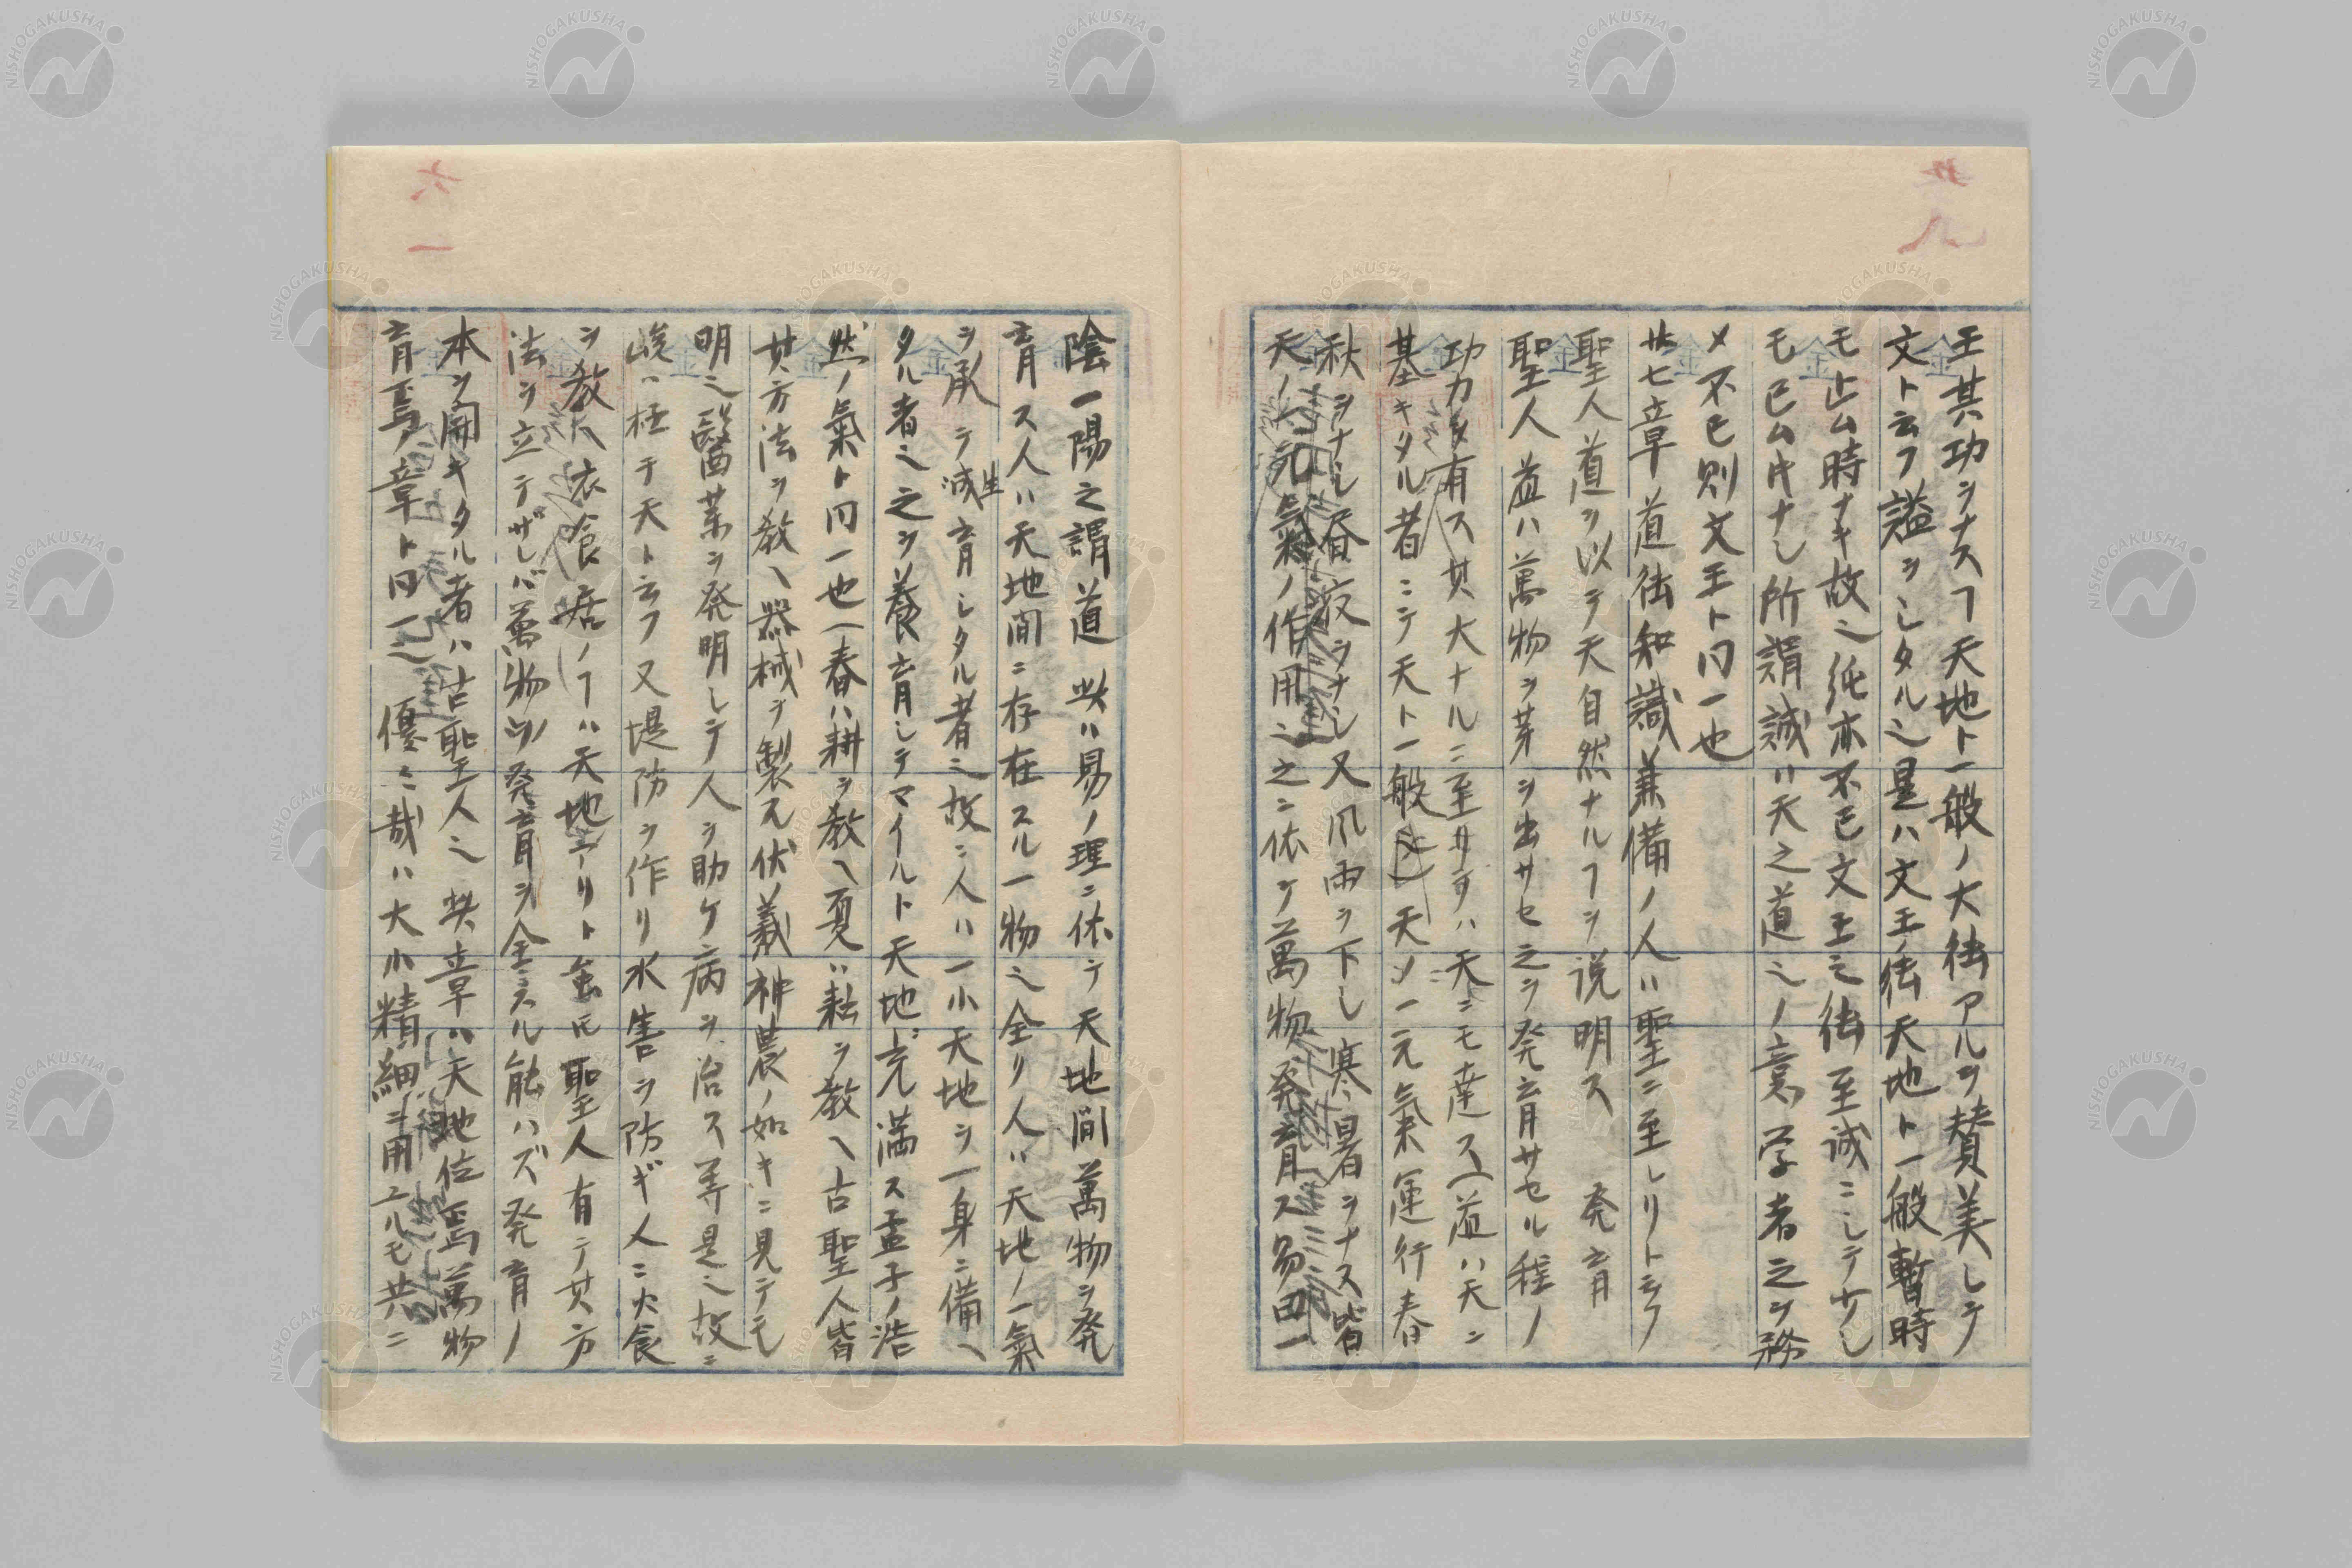 王其功ヲナスヿ天地ト一般ノ大徳アルヲ賛美シテ
文ト云フ諡ヲシタル也是ハ文王ノ徳天地ト一般暫時
モ止ム時ナキ故也純亦不已文王之徳至誠ニシテ少シ
モ已ム时ナシ所謂誠ハ天之道也ノ意学者之ヲ務
メ不已則文王ト同一也
廿七章道徳知識兼備ノ人ハ聖ニ至レリト云フ
聖人道ヲ以テ天自然ナルヿヲ説明ス 発育
聖人道ハ萬物ヲ芽ヲ出サセ之ヲ発育サセル程ノ
功力有ス其大ナルニ至テハ天ニモ達ス道ハ天ニ
基キタル者ニテ天ト一般天ノ一元氣運行春
秋ヲナシ昼夜ヲナシ又風雨ヲ下シ寒暑ヲナス皆
天ノ元氣ノ作用也之ニ依テ萬物発育ス易曰一
陰一陽之謂道此ハ易ノ理ニ依テ天地間萬物ヲ発
育ス人ハ天地間ニ存在スル一物也全リ人ハ天地ノ一氣
ヲ承テ生育シタル者也故ニ人ハ一小天地ヲ一身ニ備ヘ
タル者也之ヲ養育シテマイルト天地ニ充満ス孟子ノ浩
然ノ氣ト同一也春ハ耕ヲ教ヘ夏ハ耘ヲ教ヘ古聖人皆
其方法ヲ教ヘ器械ヲ製ス伏羲神農ノ如キニ見テモ
明也醫業ヲ発明シテ人ヲ助ケ病ヲ治ス等是也故ニ
峻ハ極テ天ト云フ又堤防ヲ作リ水害ヲ防ギ人ニ火食
ヲ教ヘ衣食居ノヿハ天地ニアリト雖圧聖人有テ其方
法ヲ立テザレバ萬物ノ発育ヲ全フスル能ハズ発育ノ
本ヲ開キタル者ハ古聖人也此章ハ天地位焉萬物
育焉ノ章ト同一也 優々哉ハ大小精細ニ用ユルモ共ニ
六一